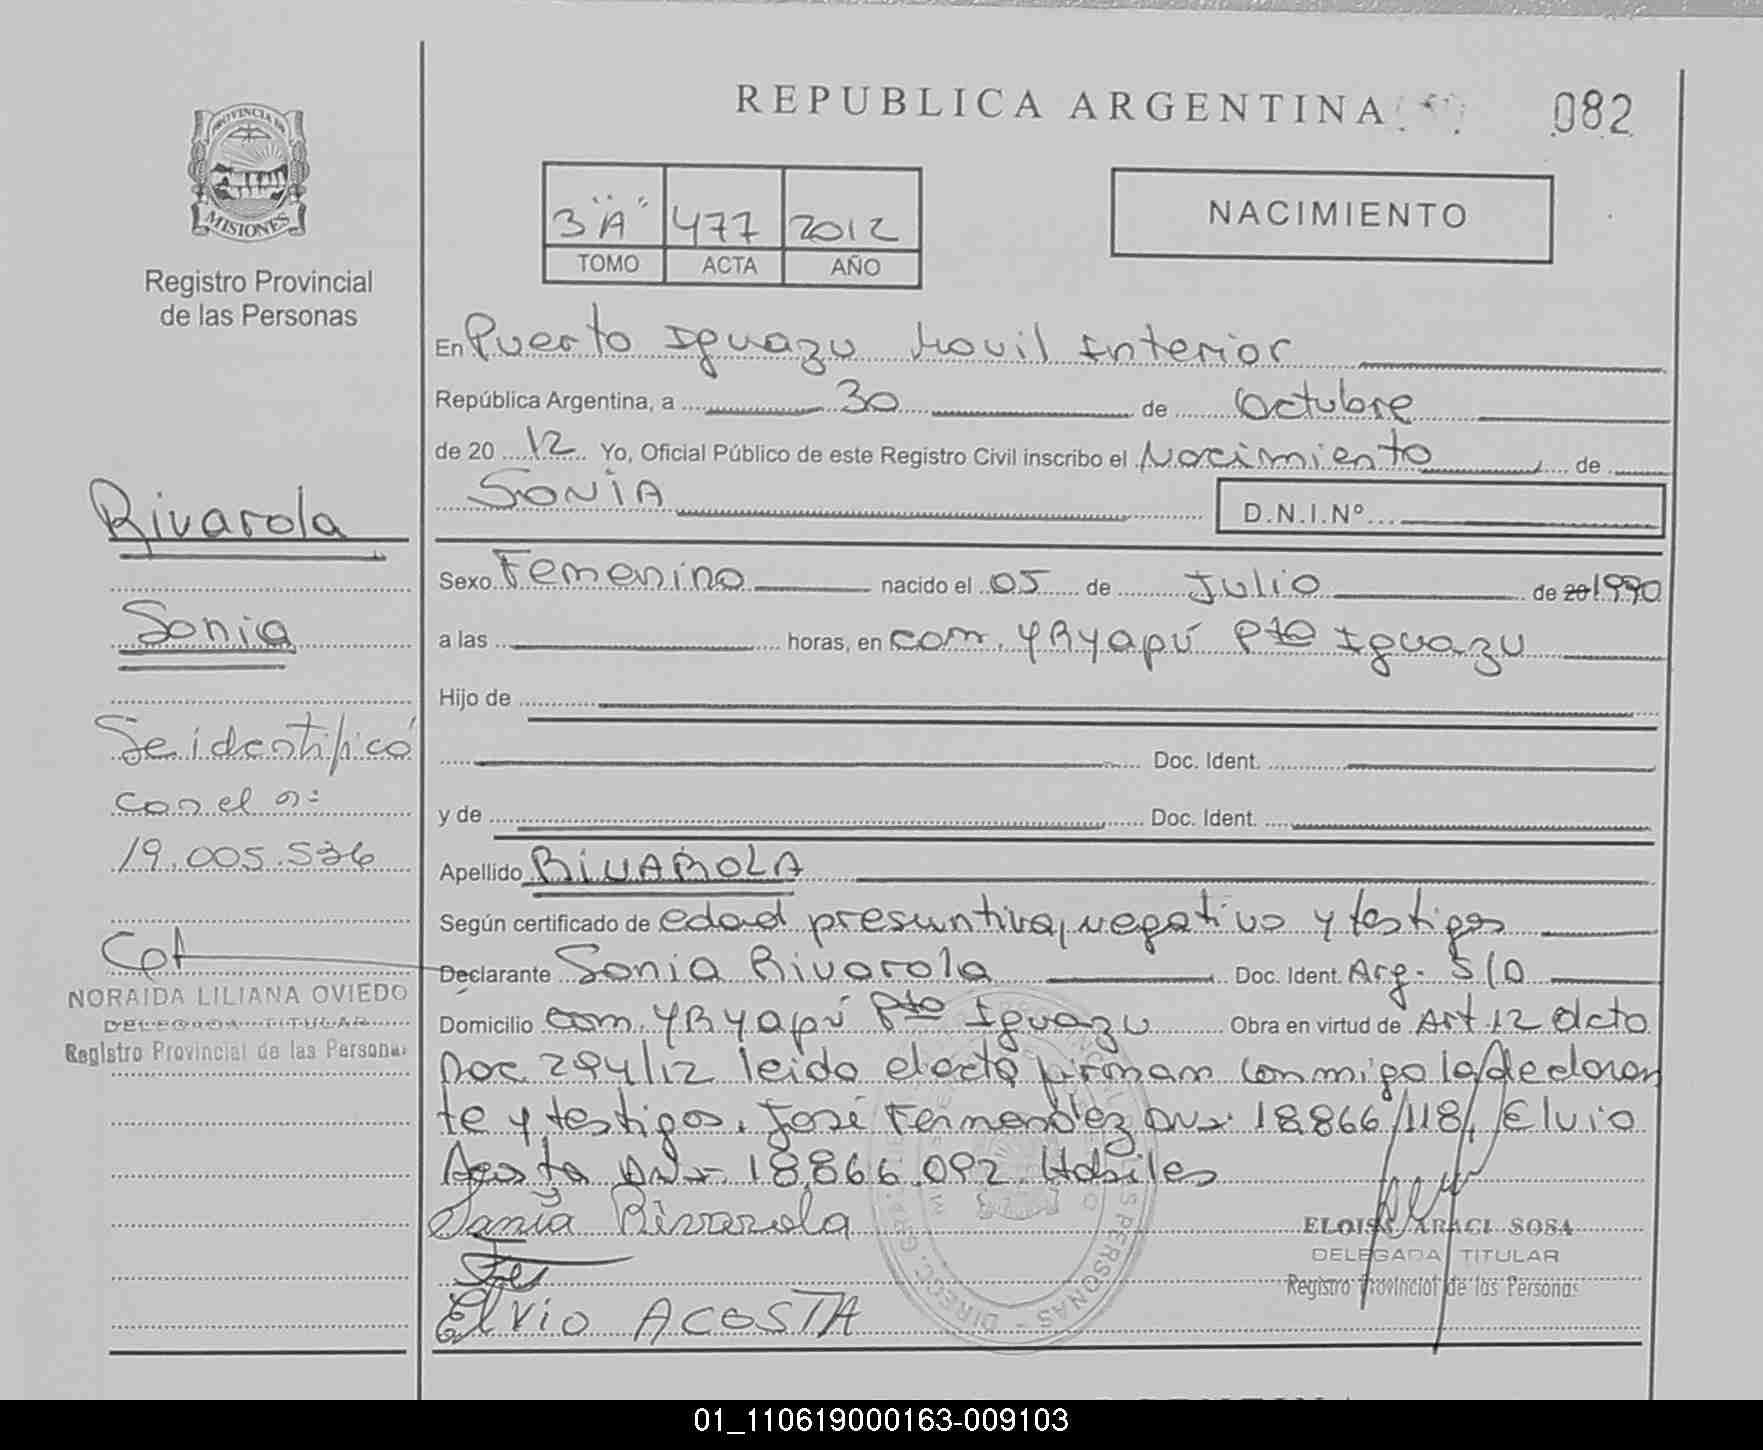 REPUBLICA ARGENTINA
082
PROVINCIA DE
MISIONES
Registro Provincial
de las Personas
3 "A" 477 2012
TOMO ACTA AÑO
NACIMIENTO
En Puerto Iguazu Movil Interior
República Argentina, a 30 de Octubre
de 20 12 Yo, Oficial Público de este Registro Civil inscribo el Nacimiento de
SONIA
D.N.I.Nº
Rivarola
Sexo Femenino nacido el 05 de Julio de 20 1990
Sonia
a las horas, en com. YRyapú Pto Iguazu
Hijo de
Se identificó
Doc. Ident.
con el nº
y de Doc. Ident.
19.005.536
Apellido RIVAROLA
Según certificado de edad presuntiva, negativo y testigos
Declarante Sonia Rivarola Doc. Ident. Arg. S/D
NORAIDA LILIANA OVIEDO
DELEGADA TITULAR
Registro Provincial de las Personas
Domicilio com. YRyapú Pto Iguazu Obra en virtud de Art 12 Dcto
Doc 294/12 leido el acta firman conmigo la declaran
te y testigos. José Fernandez DNI 18866118, Elvio
Acosta DNI 18.866.092 Habiles
Sania Rivarola
ELOISA ARACI SOSA
DELEGADA TITULAR
Registro Provincial de las Personas
Elvio ACOSTA
01_110619000163-009103